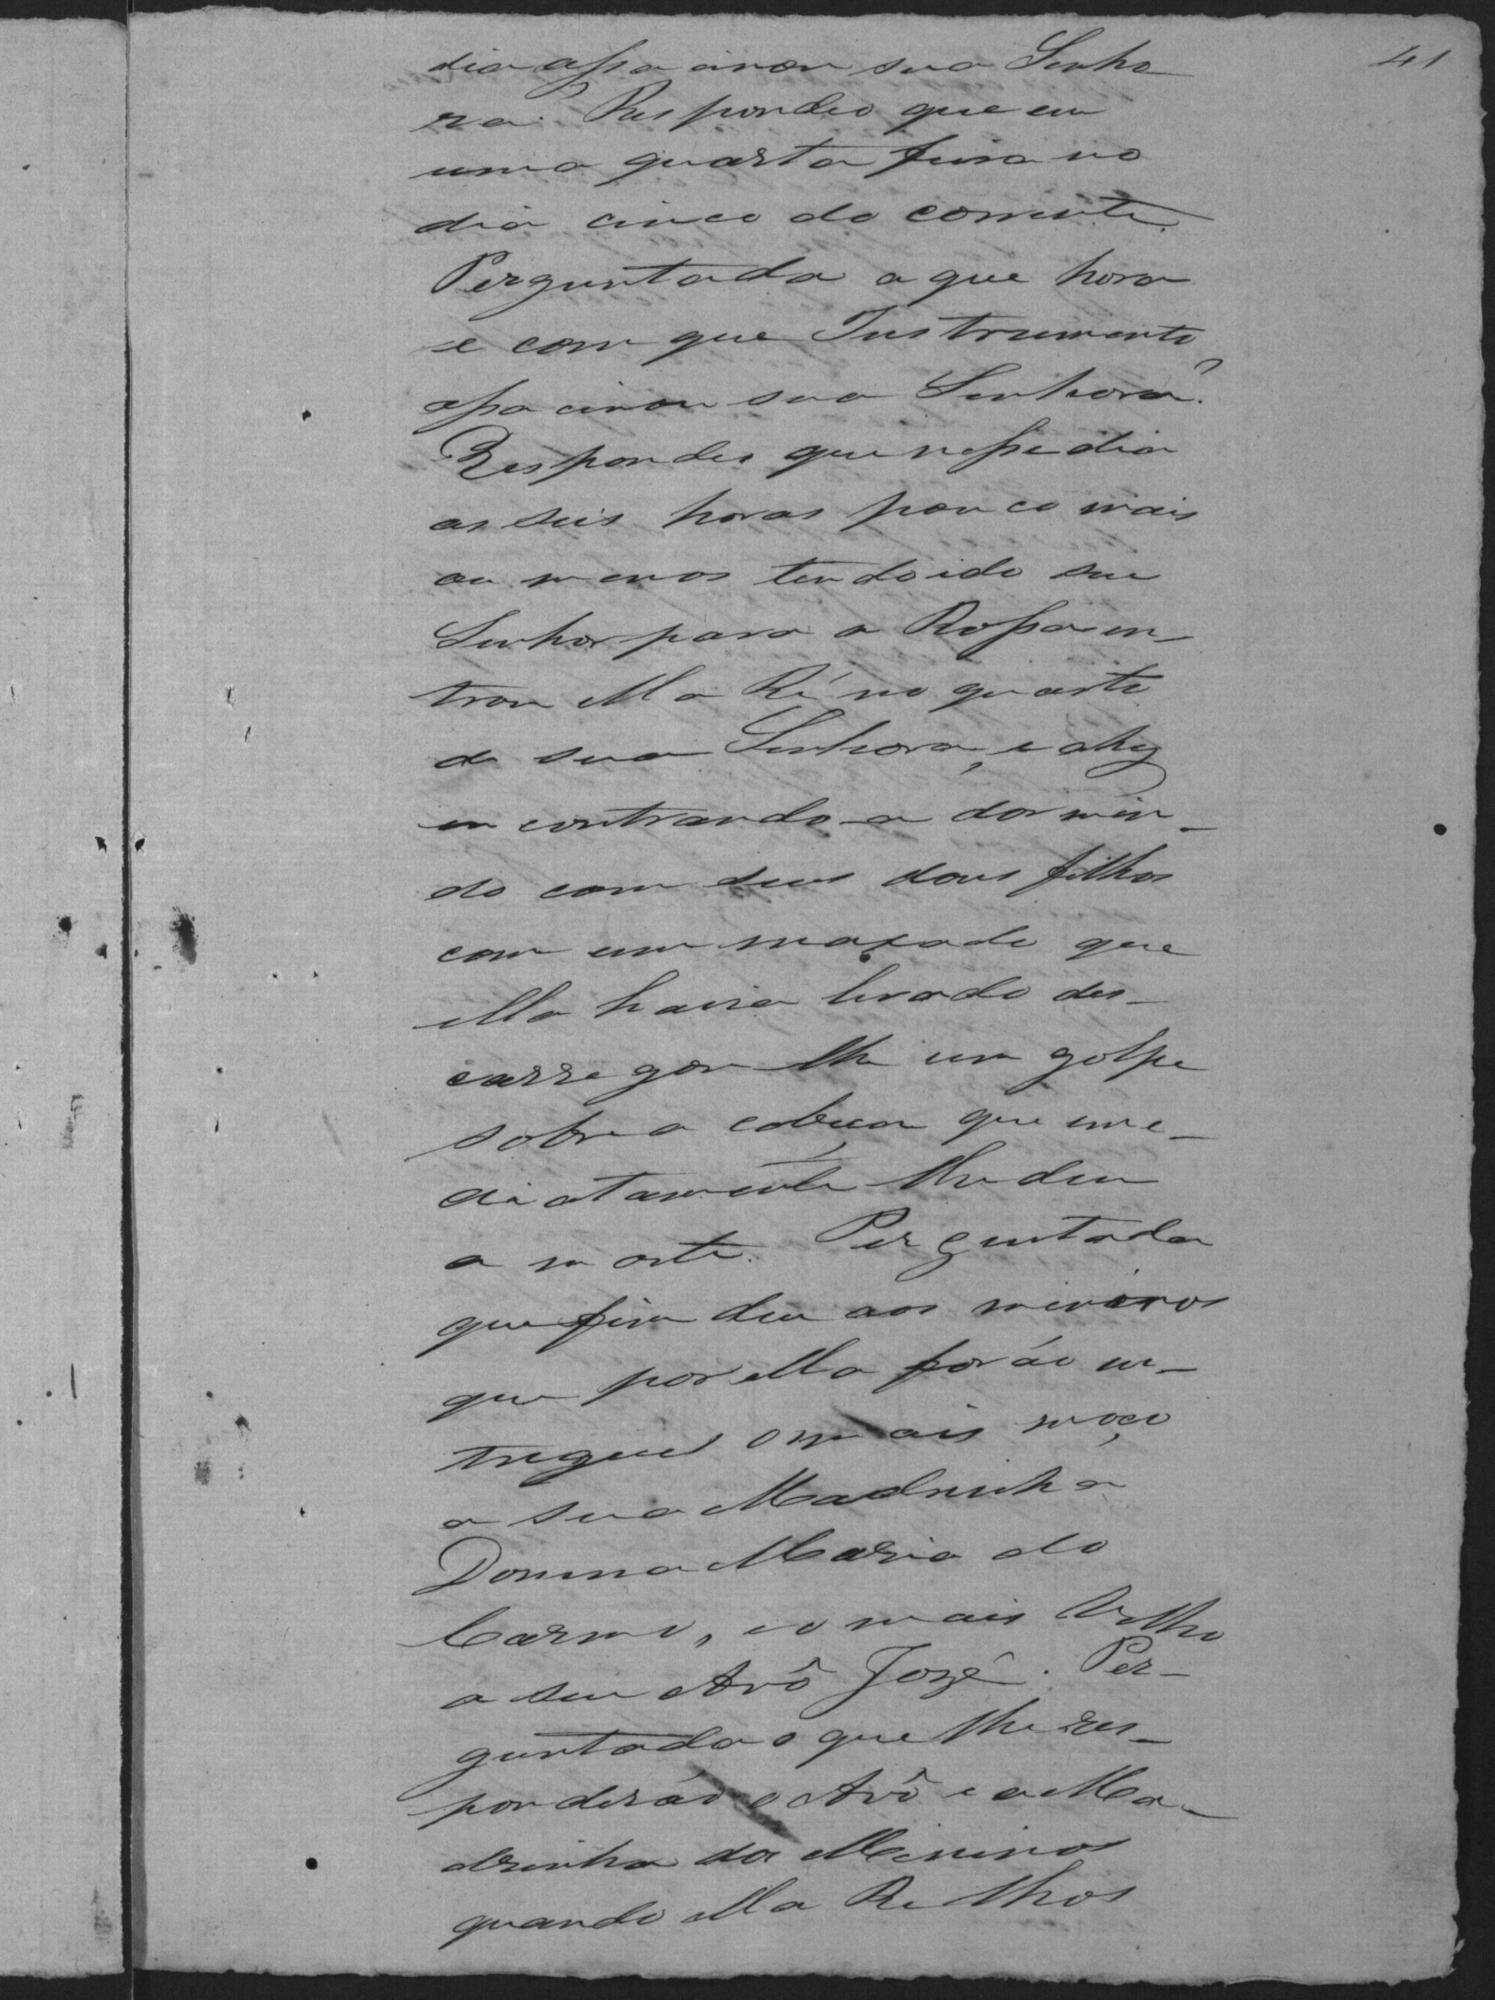 41
dia assacinou sua Senho
ra. Respondeo que em
uma quarta feira no
dia cinco do corrente.
Perguntada a que hora
e com que Instrumento
assacinou sua Senhora?
Respondeu que nesse dia
as seis horas pouco mais
ou menos tendo ido seu
Senhor para a Rossa en-
trou ella Ré no quarto
de sua Senhora, e ahy
encontrando-a dormin-
do com seus dous filhos
com um maxado que
ella havia levado des-
carregou lhe um golpe
sobre a cabeça que ime-
diatamente lhe deu
a morte. Perguntada
que fim deu aos meninos
que por ella forão en-
tregues o mais moço
a sua Madrinha
Donna Maria do
Carmo, e o mais Velho
a seu Avô José. Per-
guntada o que lhe res-
ponderão o Avô e a Ma-
drinha dos Meninos
quando ella Re lhos